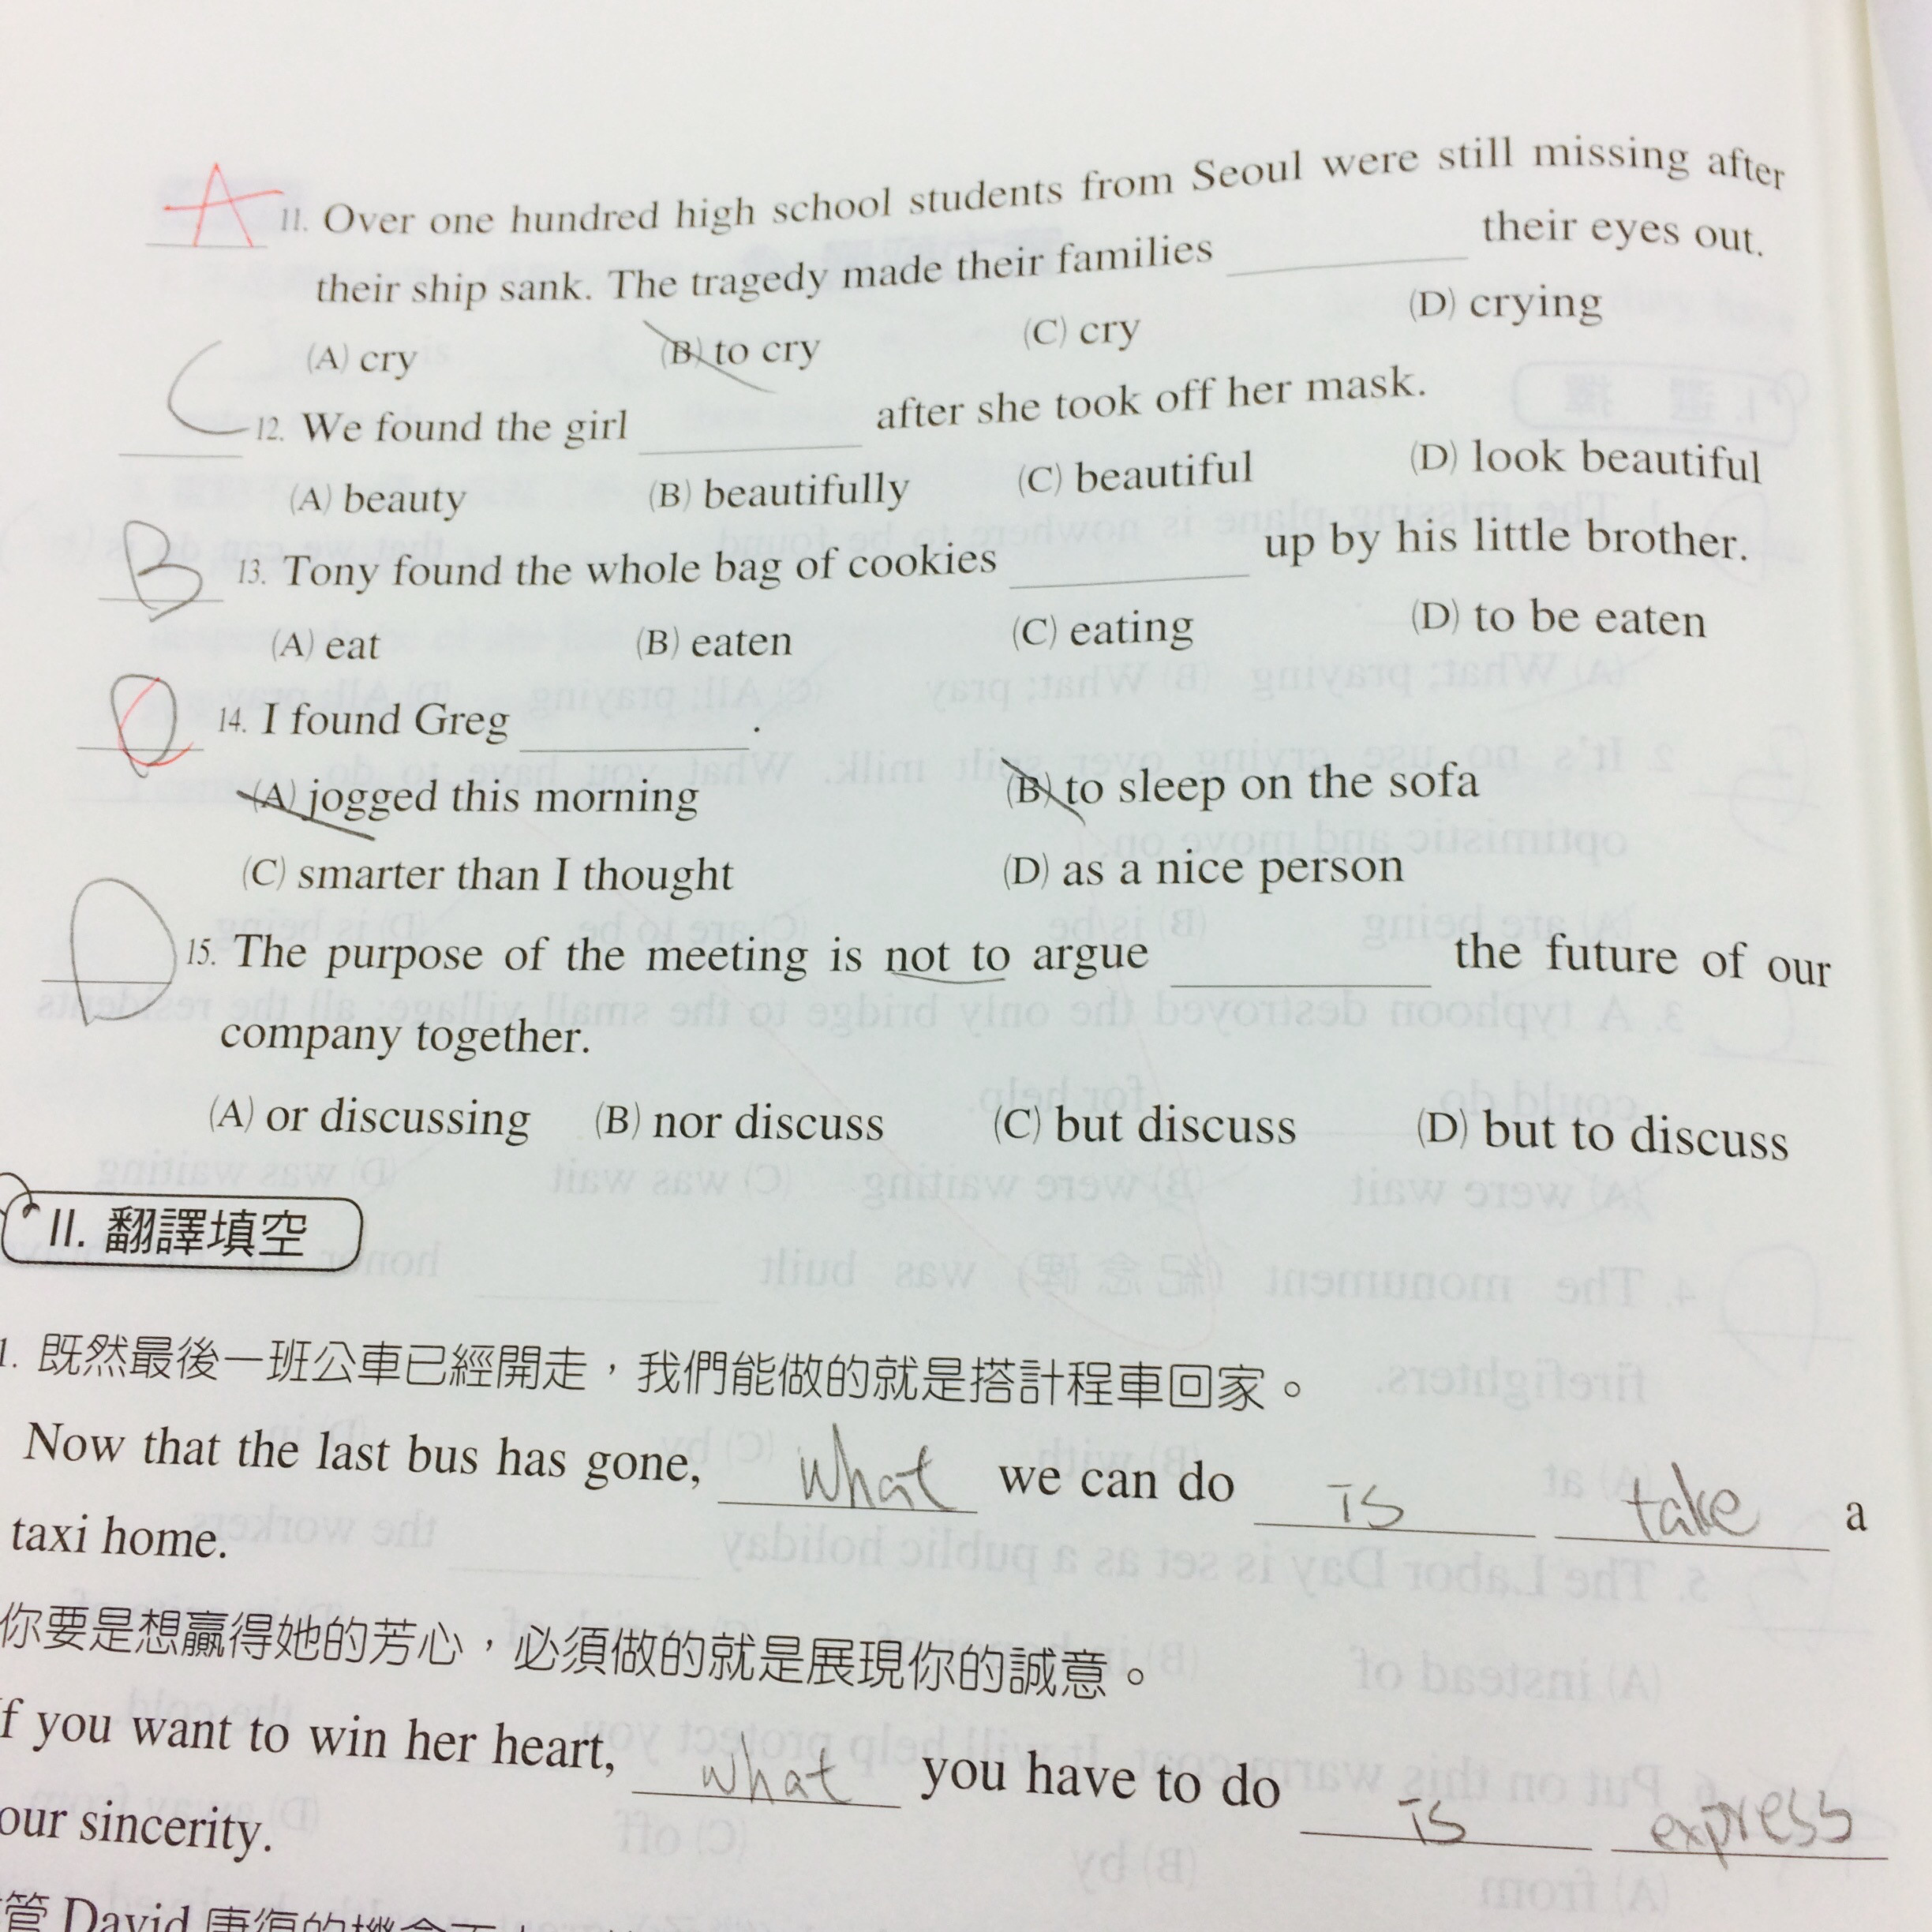 A 11. Over one hundred high school students from Seoul were still missing after
their ship sank. The tragedy made their families ________ their eyes out.
(A) cry (B) to cry (C) cry (D) crying
C 12. We found the girl ________ after she took off her mask.
(A) beauty (B) beautifully (C) beautiful (D) look beautiful
B 13. Tony found the whole bag of cookies ________ up by his little brother.
(A) eat (B) eaten (C) eating (D) to be eaten
C 14. I found Greg ________.
(A) jogged this morning (B) to sleep on the sofa
(C) smarter than I thought (D) as a nice person
D 15. The purpose of the meeting is not to argue ________ the future of our
company together.
(A) or discussing (B) nor discuss (C) but discuss (D) but to discuss
II. 翻譯填空
1. 既然最後一班公車已經開走，我們能做的就是搭計程車回家。
Now that the last bus has gone, what we can do is take a
taxi home.
你要是想贏得她的芳心，必須做的就是展現你的誠意。
f you want to win her heart, what you have to do is express
our sincerity.
管 David 康復的機會